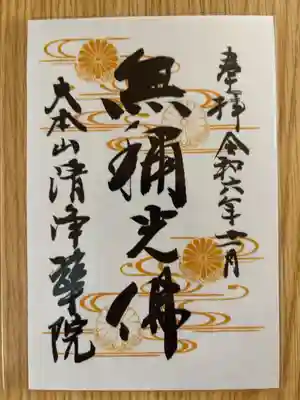 奉拝 令和六年十一月
無稱光佛
大本山清淨華院